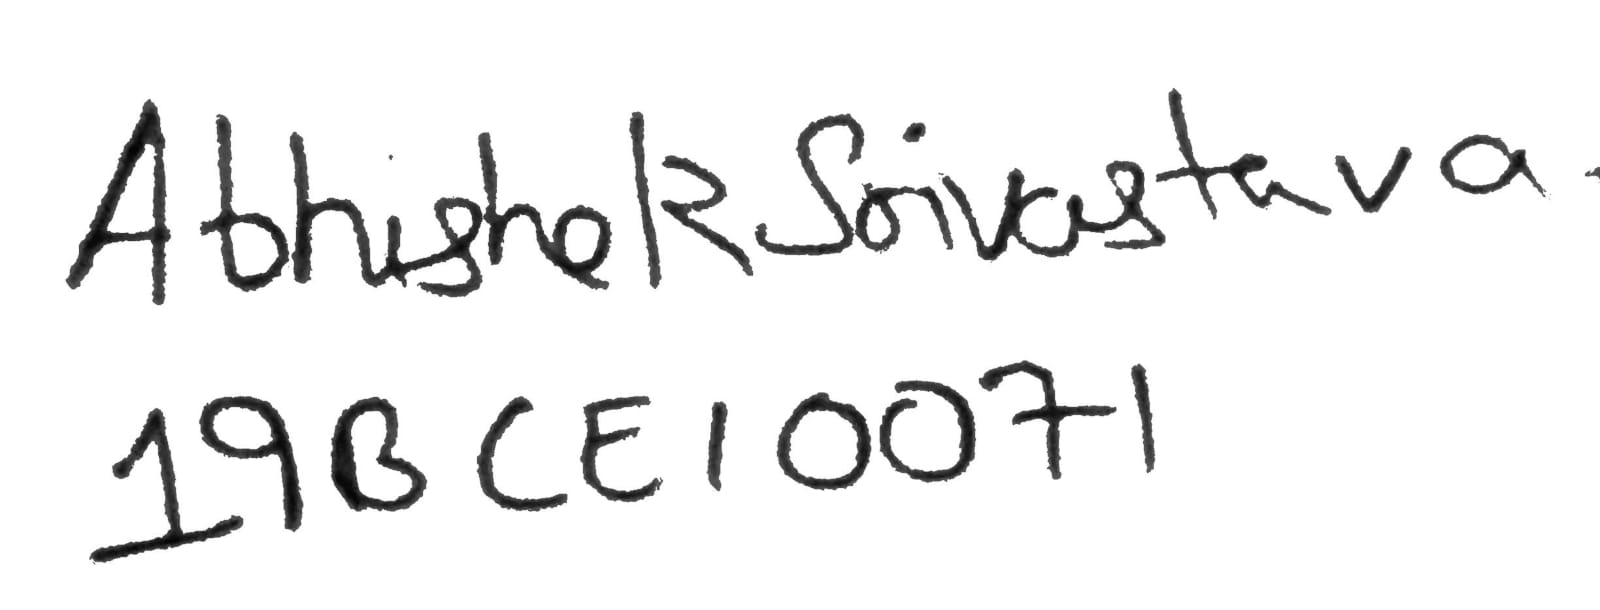 Abhishek Srivastava
19BCE10071